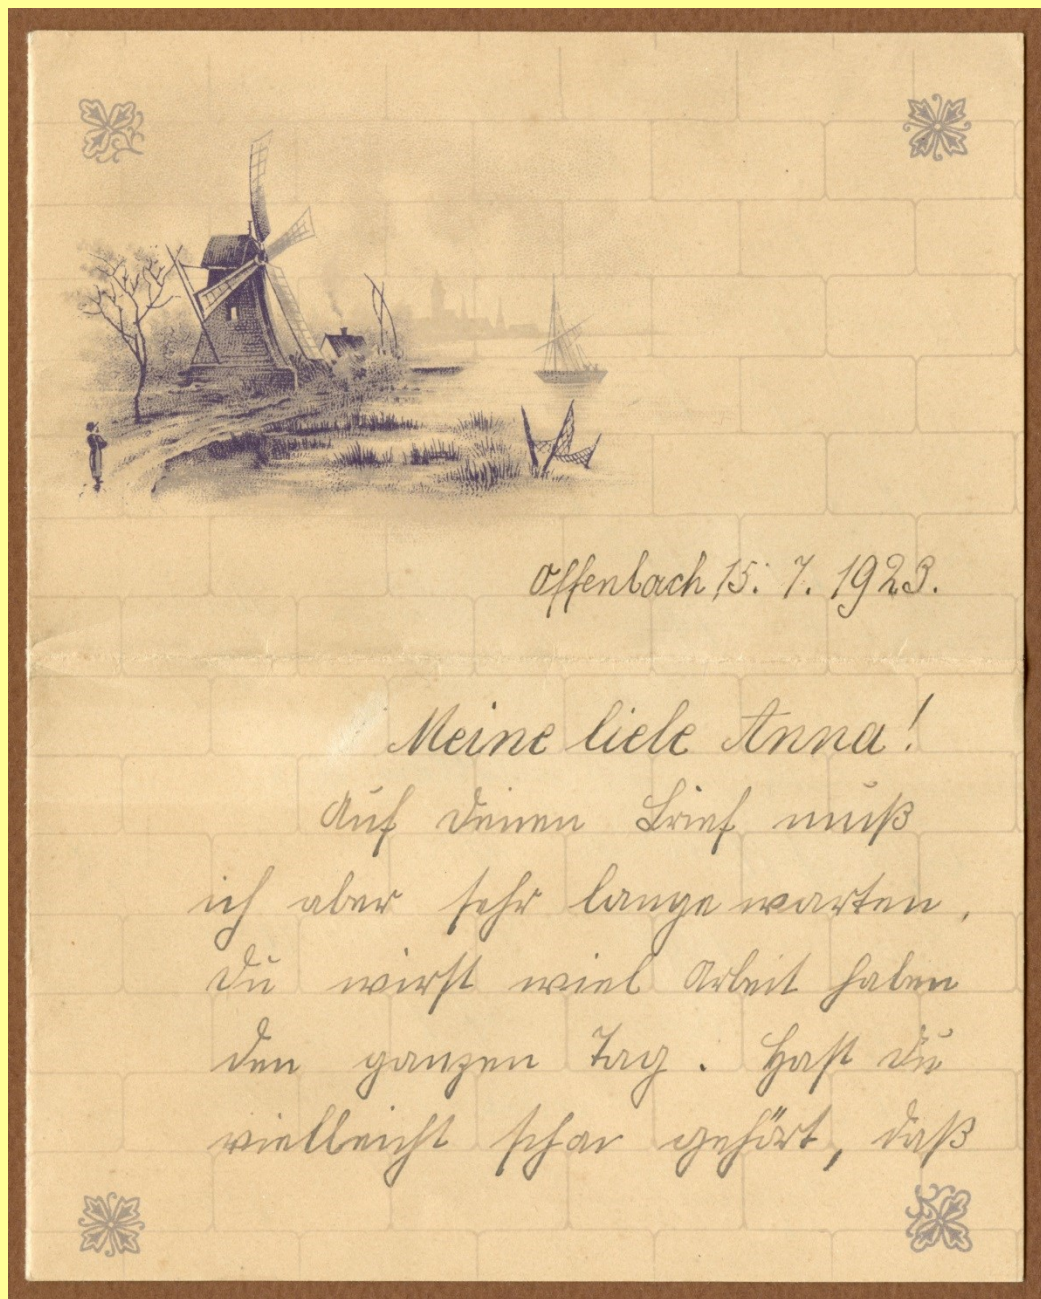 Offenbach 15. 7. 1923.
Meine liebe Anna!
Auf Deinen Brief muß
ich aber sehr lange warten,
Du wirst wiel Arbeit haben
den ganzen Tag. Hast Du
vielleicht schon gehört, daß